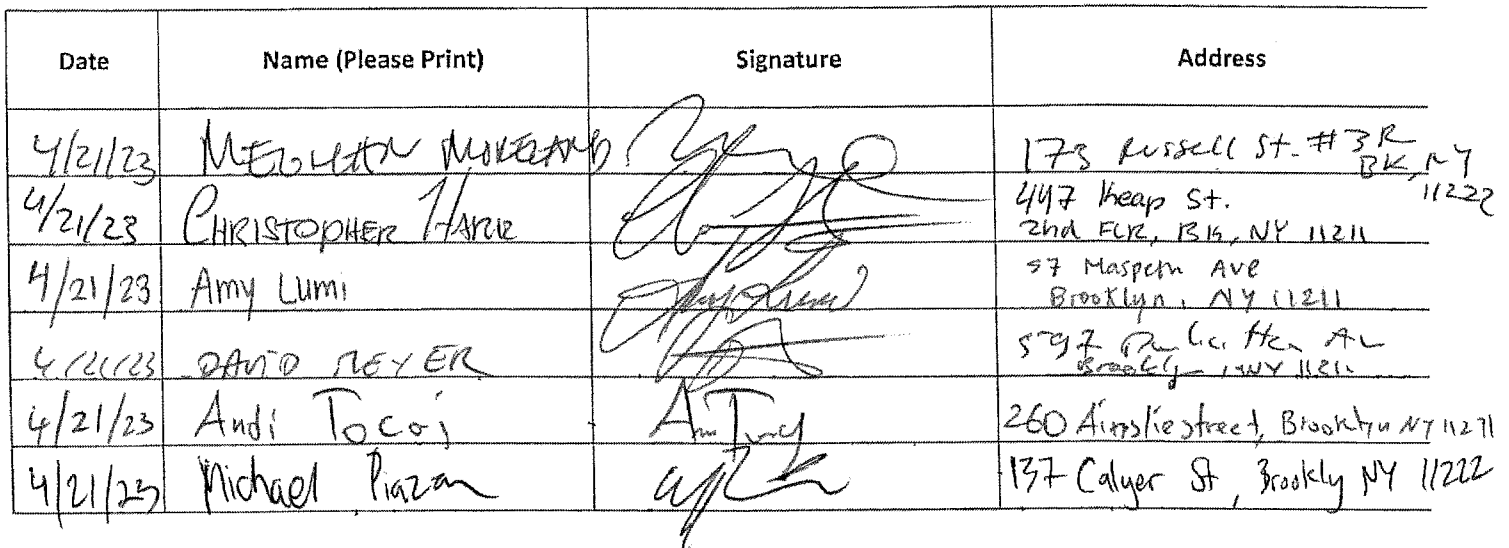 Date Name (Please Print) Signature Address
4/21/23 MEGHAN MORELAND 173 Russell St. #3R
BK, NY
11222
4/21/23 CHRISTOPHER 447 Keap St.
2nd FLR, BK, NY 11211
4/21/23 Amy Lumi 57 Maspeth Ave
Brooklyn, NY 11211
4/21/23 DAVID MEYER 597
Brooklyn, NY 11211
4/21/23 Andi Tocoj 260 Ainslie street, Brooklyn NY 11211
4/21/23 Michael 137 Calyer St, Brookly NY 11222